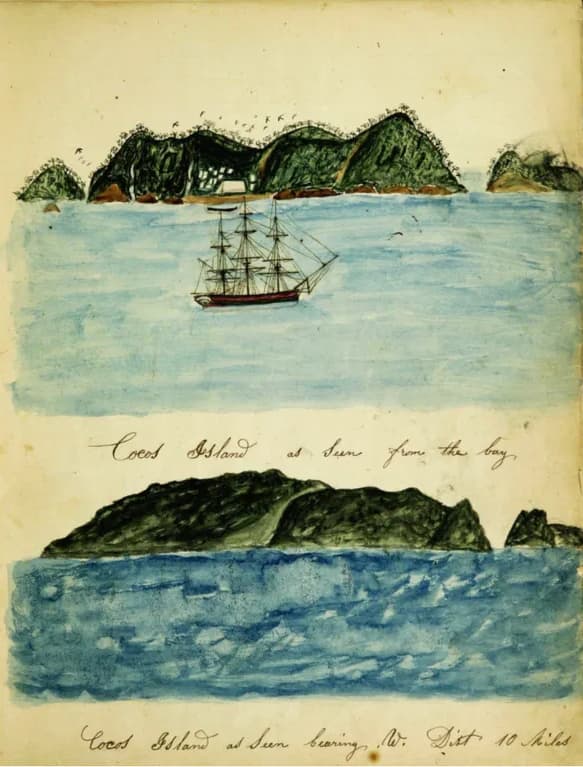 Cocos Island as Seen from the bay
Cocos Island as Seen bearing W. Dist 10 Miles